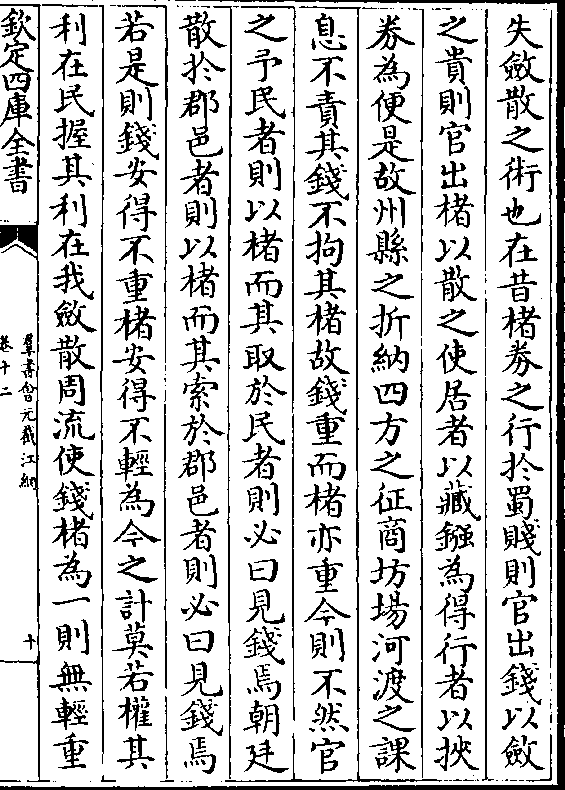 失斂散之術也在昔楮劵之行扵蜀賤則官出錢以斂
之貴則官出楮以散之使居者以藏鏹為得行者以挾
劵為便是故州縣之折納四方之征商坊場河渡之課
息不責其錢不拘其楮故錢重而楮亦重今則不然官
之予民者則以楮而其取於民者則必曰見錢焉朝廷
散扵郡邑者則以楮而其索扵郡邑者則必曰見錢焉
若是則錢安得不重楮安得不輕為今之計莫若權其
利在民握其利在我斂散周流使錢楮為一則無輕重
欽定四庫全書
羣書會元截江網
卷十二
十